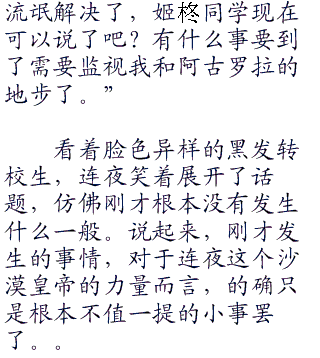 流氓解决了，姬柊同学现在
可以说了吧？有什么事要到
了需要监视我和阿古罗拉的
地步了。”
看着脸色异样的黑发转
校生，连夜笑着展开了话
题，仿佛刚才根本没有发生
什么一般。说起来，刚才发
生的事情，对于连夜这个沙
漠皇帝的力量而言，的确只
是根本不值一提的小事罢
了。。